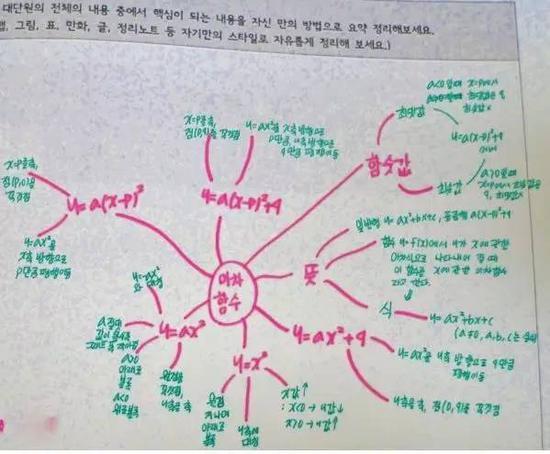 대단원의 전체의 내용 중에서 핵심이 되는 내용을 자신 만의 방법으로 요약 정리해보세요.
맵, 그림, 표, 만화, 글, 정리노트 등 자기만의 스타일로 자유롭게 정리해 보세요.)
이차
함수
y=a(x-p)²
x=p를 축,
점(p,0)을
꼭짓점
y=ax²을
x축 방향으로
p만큼 평행이동
y=a(x-p)²+q
x=p를 축,
점(p,q)를 꼭짓점
y=ax²을 x축 방향으로
p만큼, y축 방향으로
q만큼 평행이동
함숫값
최댓값
a<0일때 x=p에서
최솟값 x
y=a(x-p)²+q
에서
최솟값
a>0일때
x=p에서 최솟값은
q, 최댓값 x
뜻
일반형 y=ax²+bx+c, 표준형 a(x-p)²+q
함수 y=f(x)에서 y가 x에 관한
이차식으로 나타내어 질 때
이 함수를 x에 관한 이차함수
라고 한다.
식
y=ax²+bx+c
(a≠0, a, b, c는
y=ax²+q
y=ax²을 y축 방향으로 q만큼
평행이동
y축을 축, 점(0,q)를 꼭짓점
y=x²
원점
지나며
아래로
볼록
y축에
대칭
x값↑
: x<0→y값↓
x>0→y값↑
y=ax²
원점을
꼭짓점,
y축을 축
a>0
아래로
볼록
a<0
위로볼록